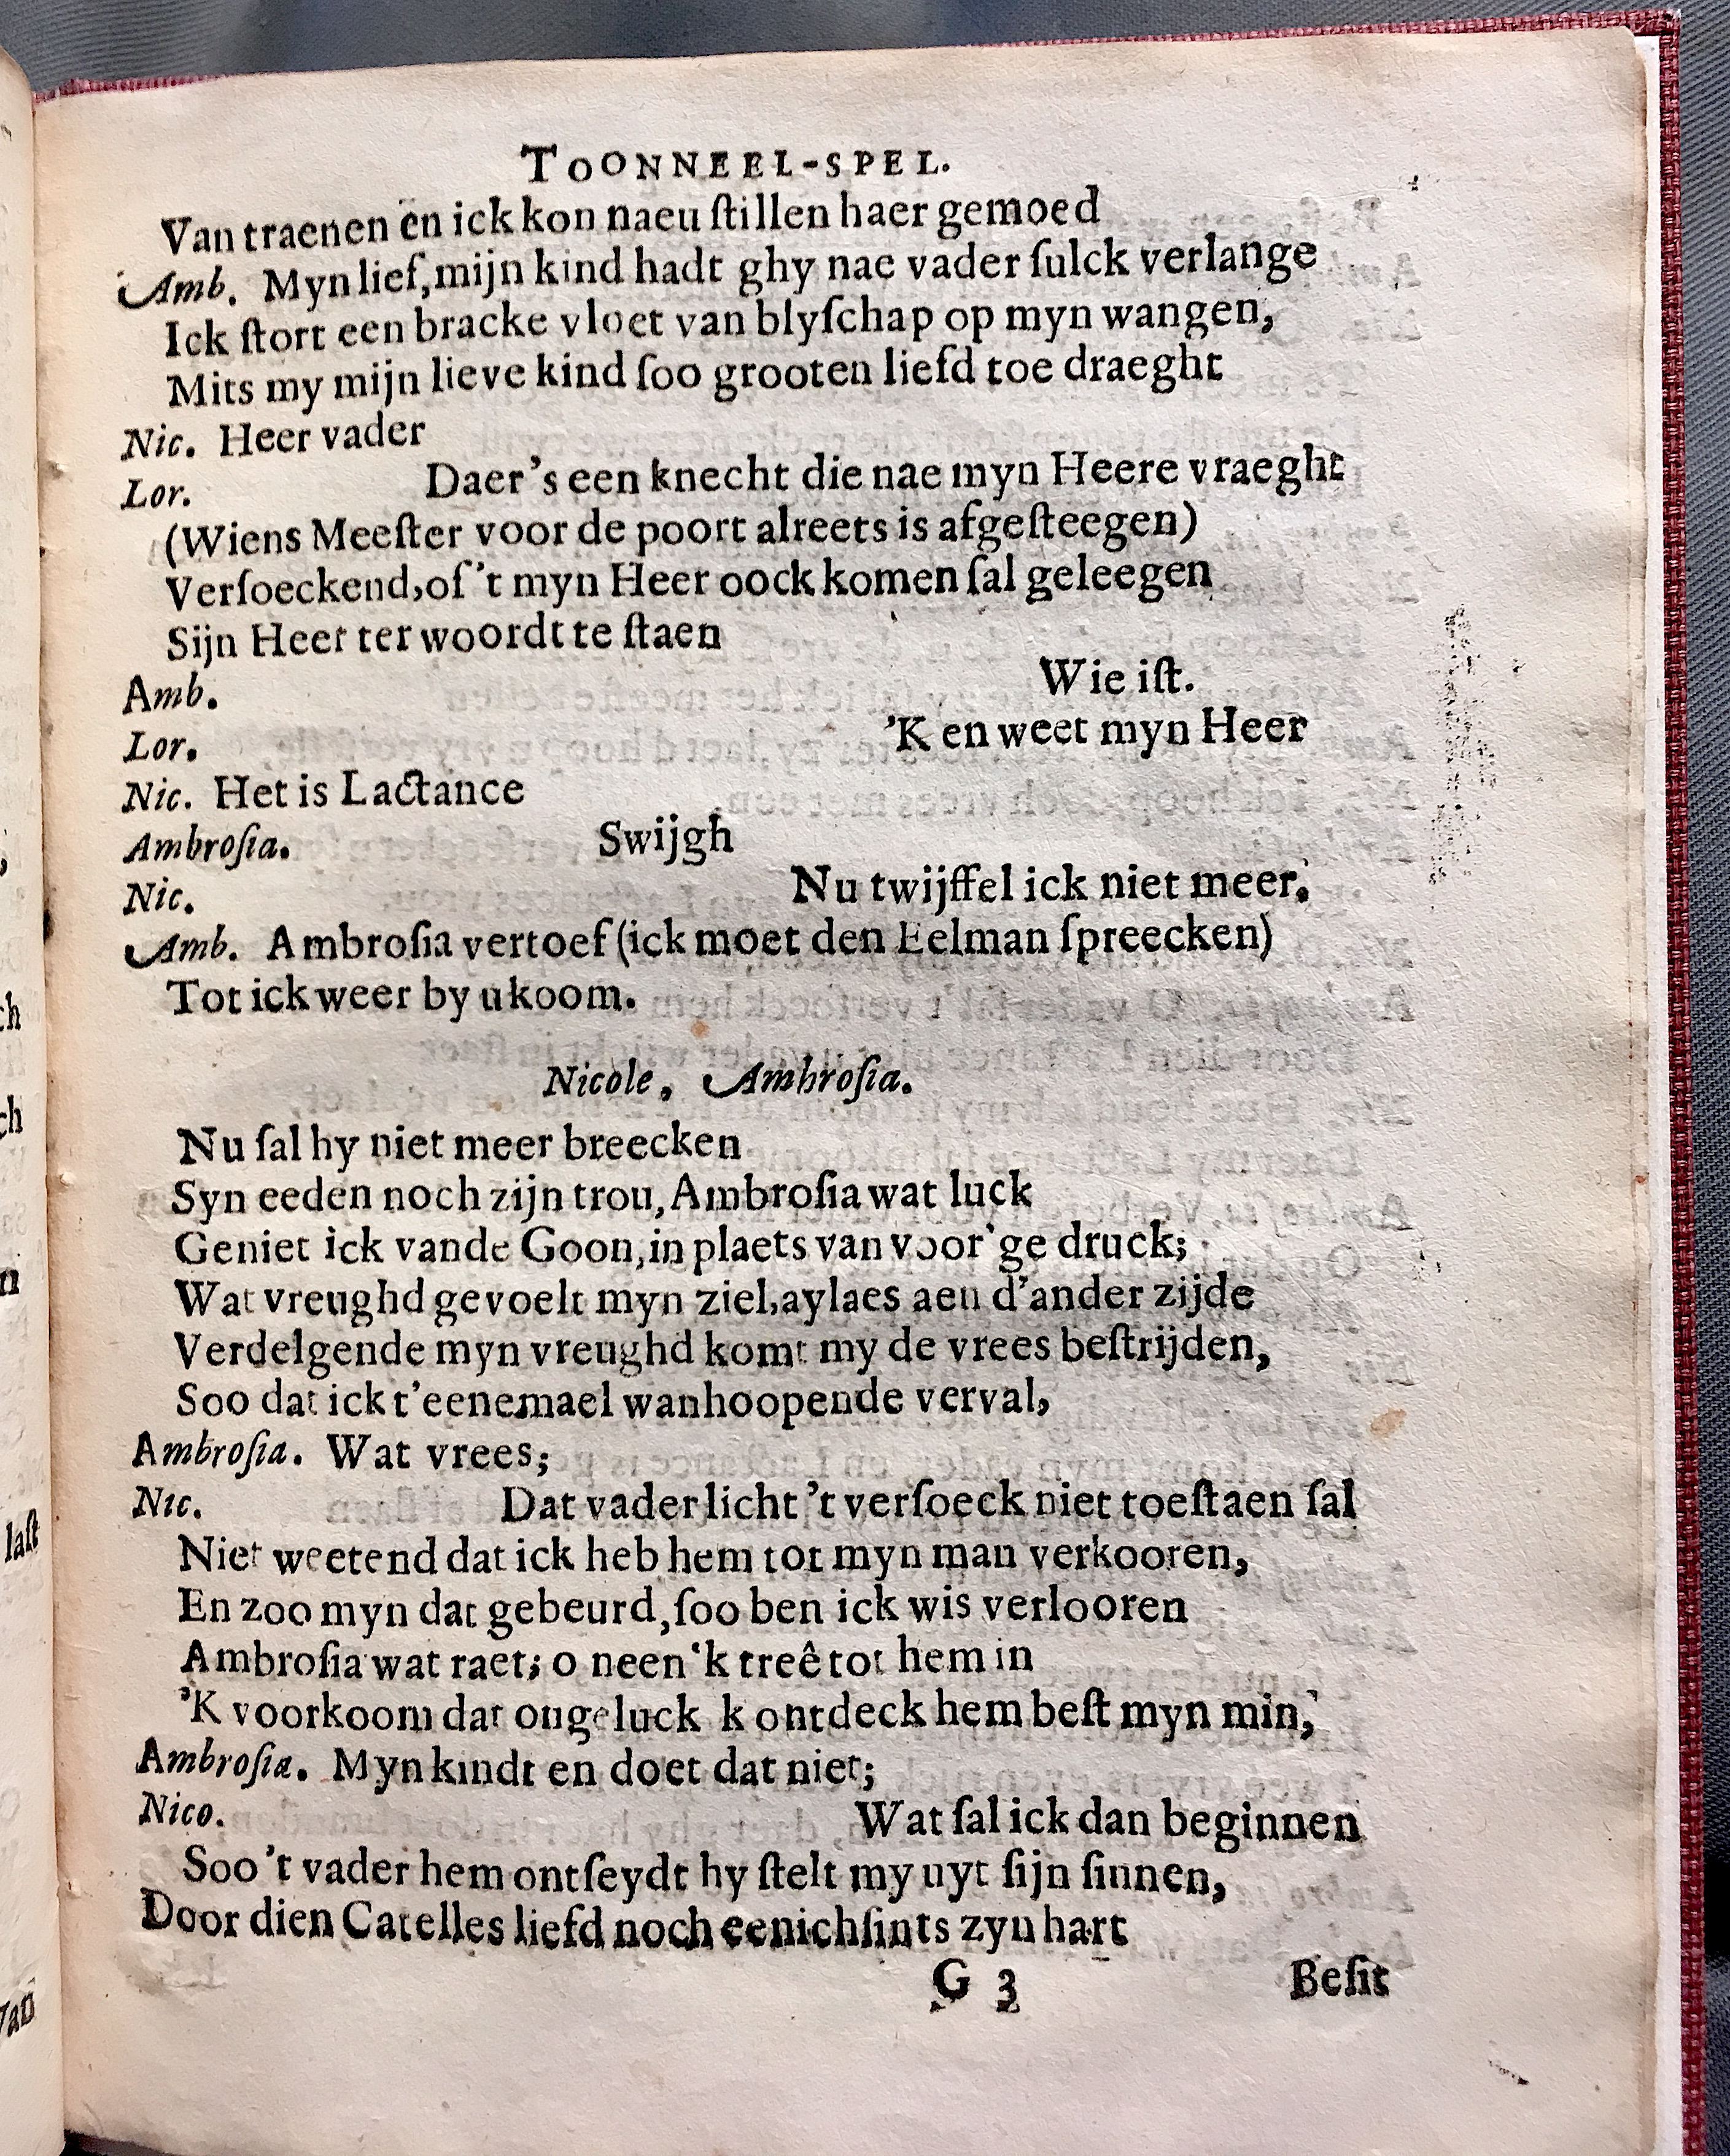 TOONNEEL-SPEL.
Van traenen en ick kon naeu ſtillen haer gemoed
Amb. Myn lief, mijn kind hadt ghy nae vader ſulck verlange
Ick ſtort een bracke vloet van blyſchap op myn wangen,
Mits my mijn lieve kind ſoo grooten liefd toe draeght
Nic. Heer vader
Lor. Daer's een knecht die nae myn Heere vraeght
(Wiens Meeſter voor de poort alreets is afgeſteegen)
Verſoeckend, of 't myn Heer oock komen ſal geleegen
Sijn Heer ter woordt te ſtaen
Amb. Wie iſt.
Lor. 'K en weet myn Heer
Nic. Het is Lactance
Ambroſia. Swijgh
Nic. Nu twijffel ick niet meer.
Amb. Ambroſia vertoef (ick moet den Eelman ſpreecken)
Tot ick weer by u koom.
Nicole, Ambroſia.
Nu ſal hy niet meer breecken
Syn eeden noch zijn trou, Ambroſia wat luck
Geniet ick vande Goon, in plaets van voor'ge druck;
Wat vreughd gevoelt myn ziel, aylaes aen d'ander zijde
Verdelgende myn vreughd komt my de vrees beſtrijden,
Soo dat ick t'eenemael wanhoopende verval,
Ambroſia. Wat vrees;
Nic. Dat vader licht 't verſoeck niet toeſtaen ſal
Niet weetend dat ick heb hem tot myn man verkooren,
En zoo myn dat gebeurd, ſoo ben ick wis verlooren
Ambroſia wat raet; o neen 'k treê tot hem in
'K voorkoom dat ongeluck k ontdeck hem beſt myn min,
Ambroſia. Myn kindt en doet dat niet;
Nico. Wat ſal ick dan beginnen
Soo 't vader hem ontſeydt hy ſtelt my uyt ſijn ſinnen,
Door dien Catelles liefd noch eenichſints zyn hart
G 3 Beſit